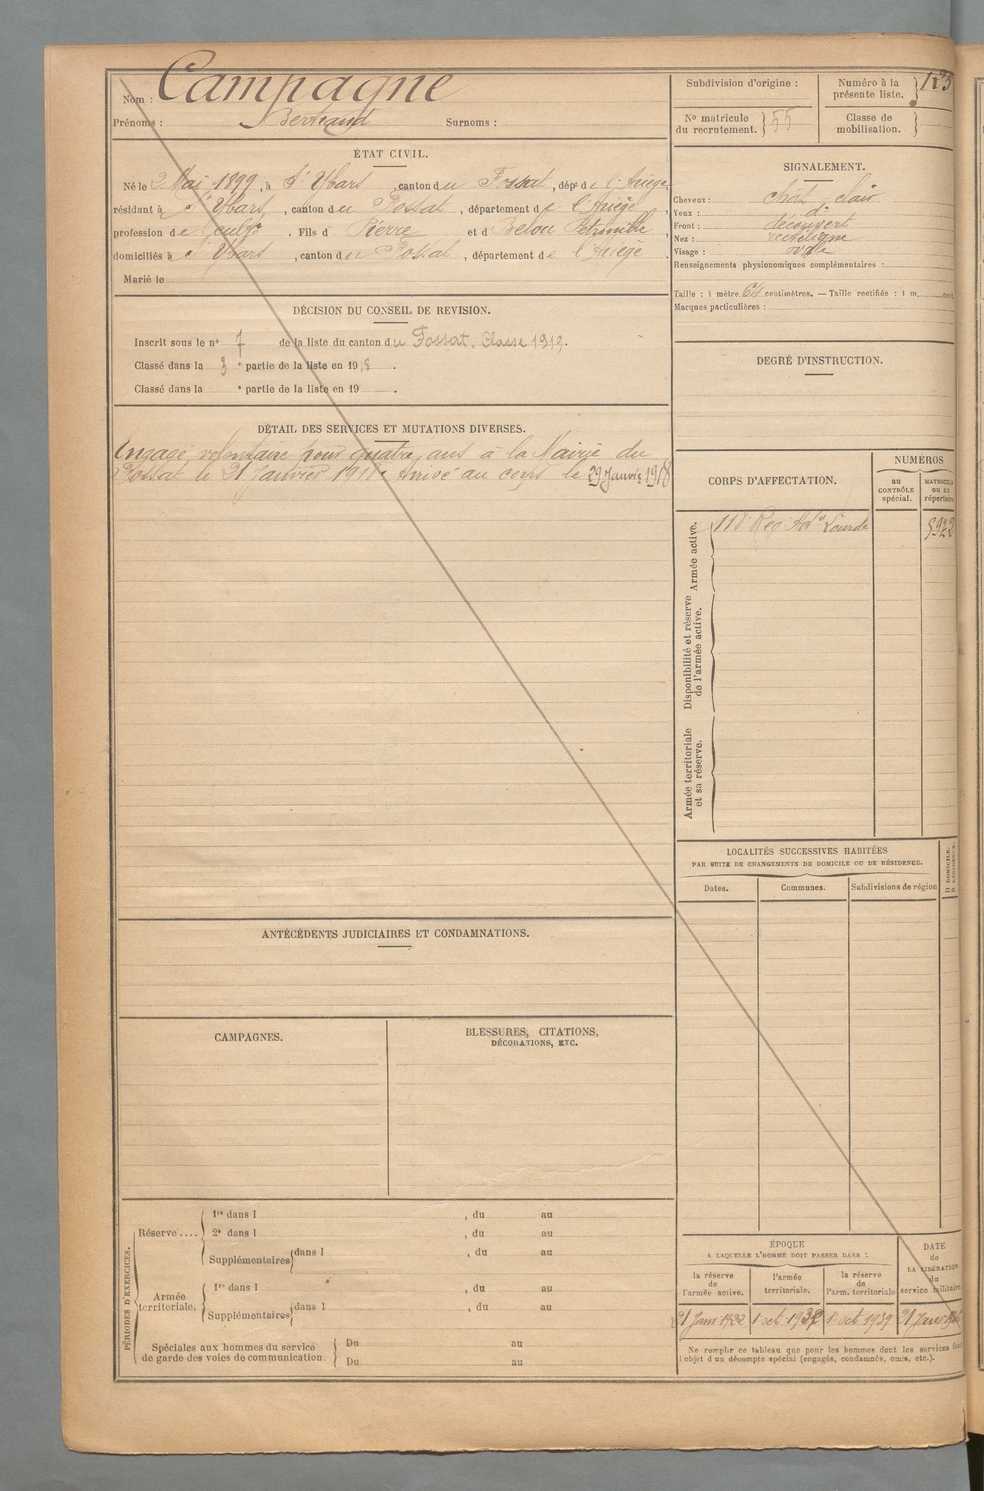 Nom : Campagne
Prénoms : Bertrand Surnoms :
ÉTAT CIVIL.
Né le 2 Mai 1899, à St Ybars, canton du Fossat, dépt de l'Ariège
résidant à St Ybars, canton du Fossat, département de l'Ariège,
profession de . Fils d Pierre et d Belou Pétronille,
domiciliés à St Ybars, canton du Fossat, département de l'Ariège.
Marié le
DÉCISION DU CONSEIL DE REVISION.
Inscrit sous le no 7 de la liste du canton du Fossat. Classe 1919.
Classé dans la 3 e partie de la liste en 1918.
Classé dans la e partie de la liste en 19 .
DÉTAIL DES SERVICES ET MUTATIONS DIVERSES.
Engagé volontaire pour quatre ans à la Mairie du
Fossat le 21 Janvier 1918. Arrivé au corps le 29 Janvier 1918
ANTÉCÉDENTS JUDICIAIRES ET CONDAMNATIONS.
CAMPAGNES.
BLESSURES, CITATIONS,
DÉCORATIONS, ETC.
PÉRIODES D'EXERCICES.
Réserve .... 1re dans l , du au
2e dans l , du au
Supplémentaires dans l , du au
Armée territoriale. 1re dans l , du au
Supplémentaires dans l , du au
Spéciales aux hommes du service
de garde des voies de communication.
Du au
Du au
Subdivision d'origine :
Numéro à la
présente liste. 123
No matricule
du recrutement. 55
Classe de
mobilisation.
SIGNALEMENT.
Cheveux : chât. clair
Yeux : do
Front : découvert
Nez : rectiligne
Visage : ovale
Renseignements physionomiques complémentaires :
Taille : 1 mètre 64 centimètres. — Taille rectifiée : 1 m. cent.
Marques particulières :
DEGRÉ D'INSTRUCTION.
CORPS D'AFFECTATION.
NUMÉROS
au
CONTRÔLE
spécial.
MATRICULE
OU AU
répertoire.
Armée active.
118 Reg. Ade Lourde 5922
Disponibilité et réserve
de l'armée active.
Armée territoriale
et sa réserve.
LOCALITÉS SUCCESSIVES HABITÉES
PAR SUITE DE CHANGEMENTS DE DOMICILE OU DE RÉSIDENCE.
Dates.
Communes.
Subdivisions de région
D. DOMICILE.
R. RÉSIDENCE.
ÉPOQUE
A LAQUELLE L'HOMME DOIT PASSER DANS :
la réserve
de
l'armée active.
l'armée
territoriale.
la réserve
de
l'arm. territoriale
DATE
de
LA LIBÉRATION
du
service militaire
21 Janv 1922 1 oct. 1932 1 oct 1939 21 Janv
Ne remplir ce tableau que pour les hommes dont les services font
l'objet d'un décompte spécial (engagés, condamnés, omis, etc.).